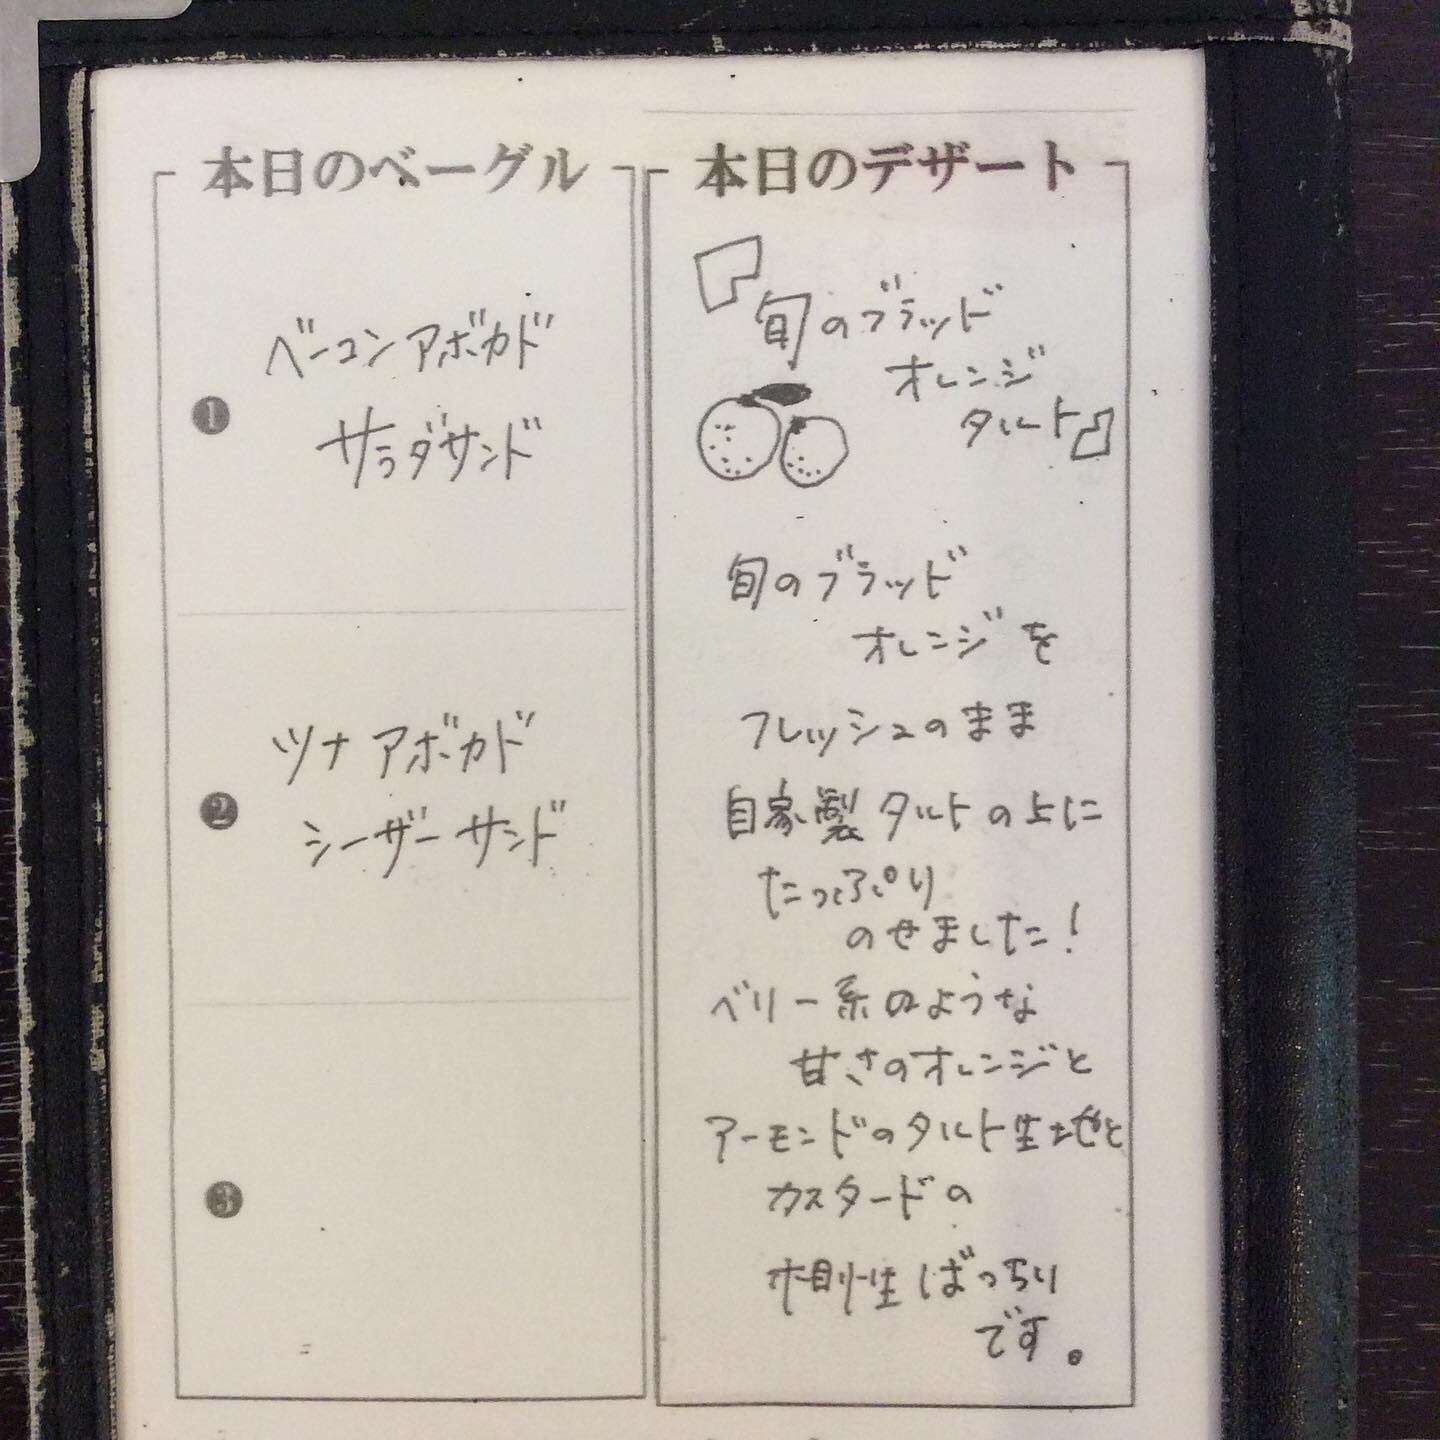 本日のベーグル
❶
ベーコンアボカド
サラダサンド
❷
ツナアボカド
シーザーサンド
❸
本日のデザート
『旬のブラッド
オレンジ
タルト』
旬のブラッド
オレンジを
フレッシュのまま
自家製タルトの上に
たっぷり
のせました!
ベリー系のような
甘さのオレンジと
アーモンドのタルト生地と
カスタードの
相性ばっちり
です。